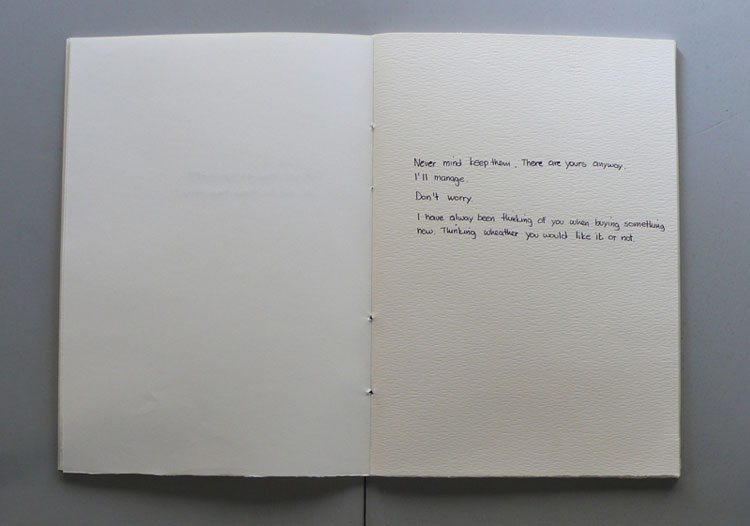 Never mind keep them. There are yours anyway.
I'll manage.
Don't worry.
I have alway been thinking of you when buying something
new. Thinking wheather you would like it or not.